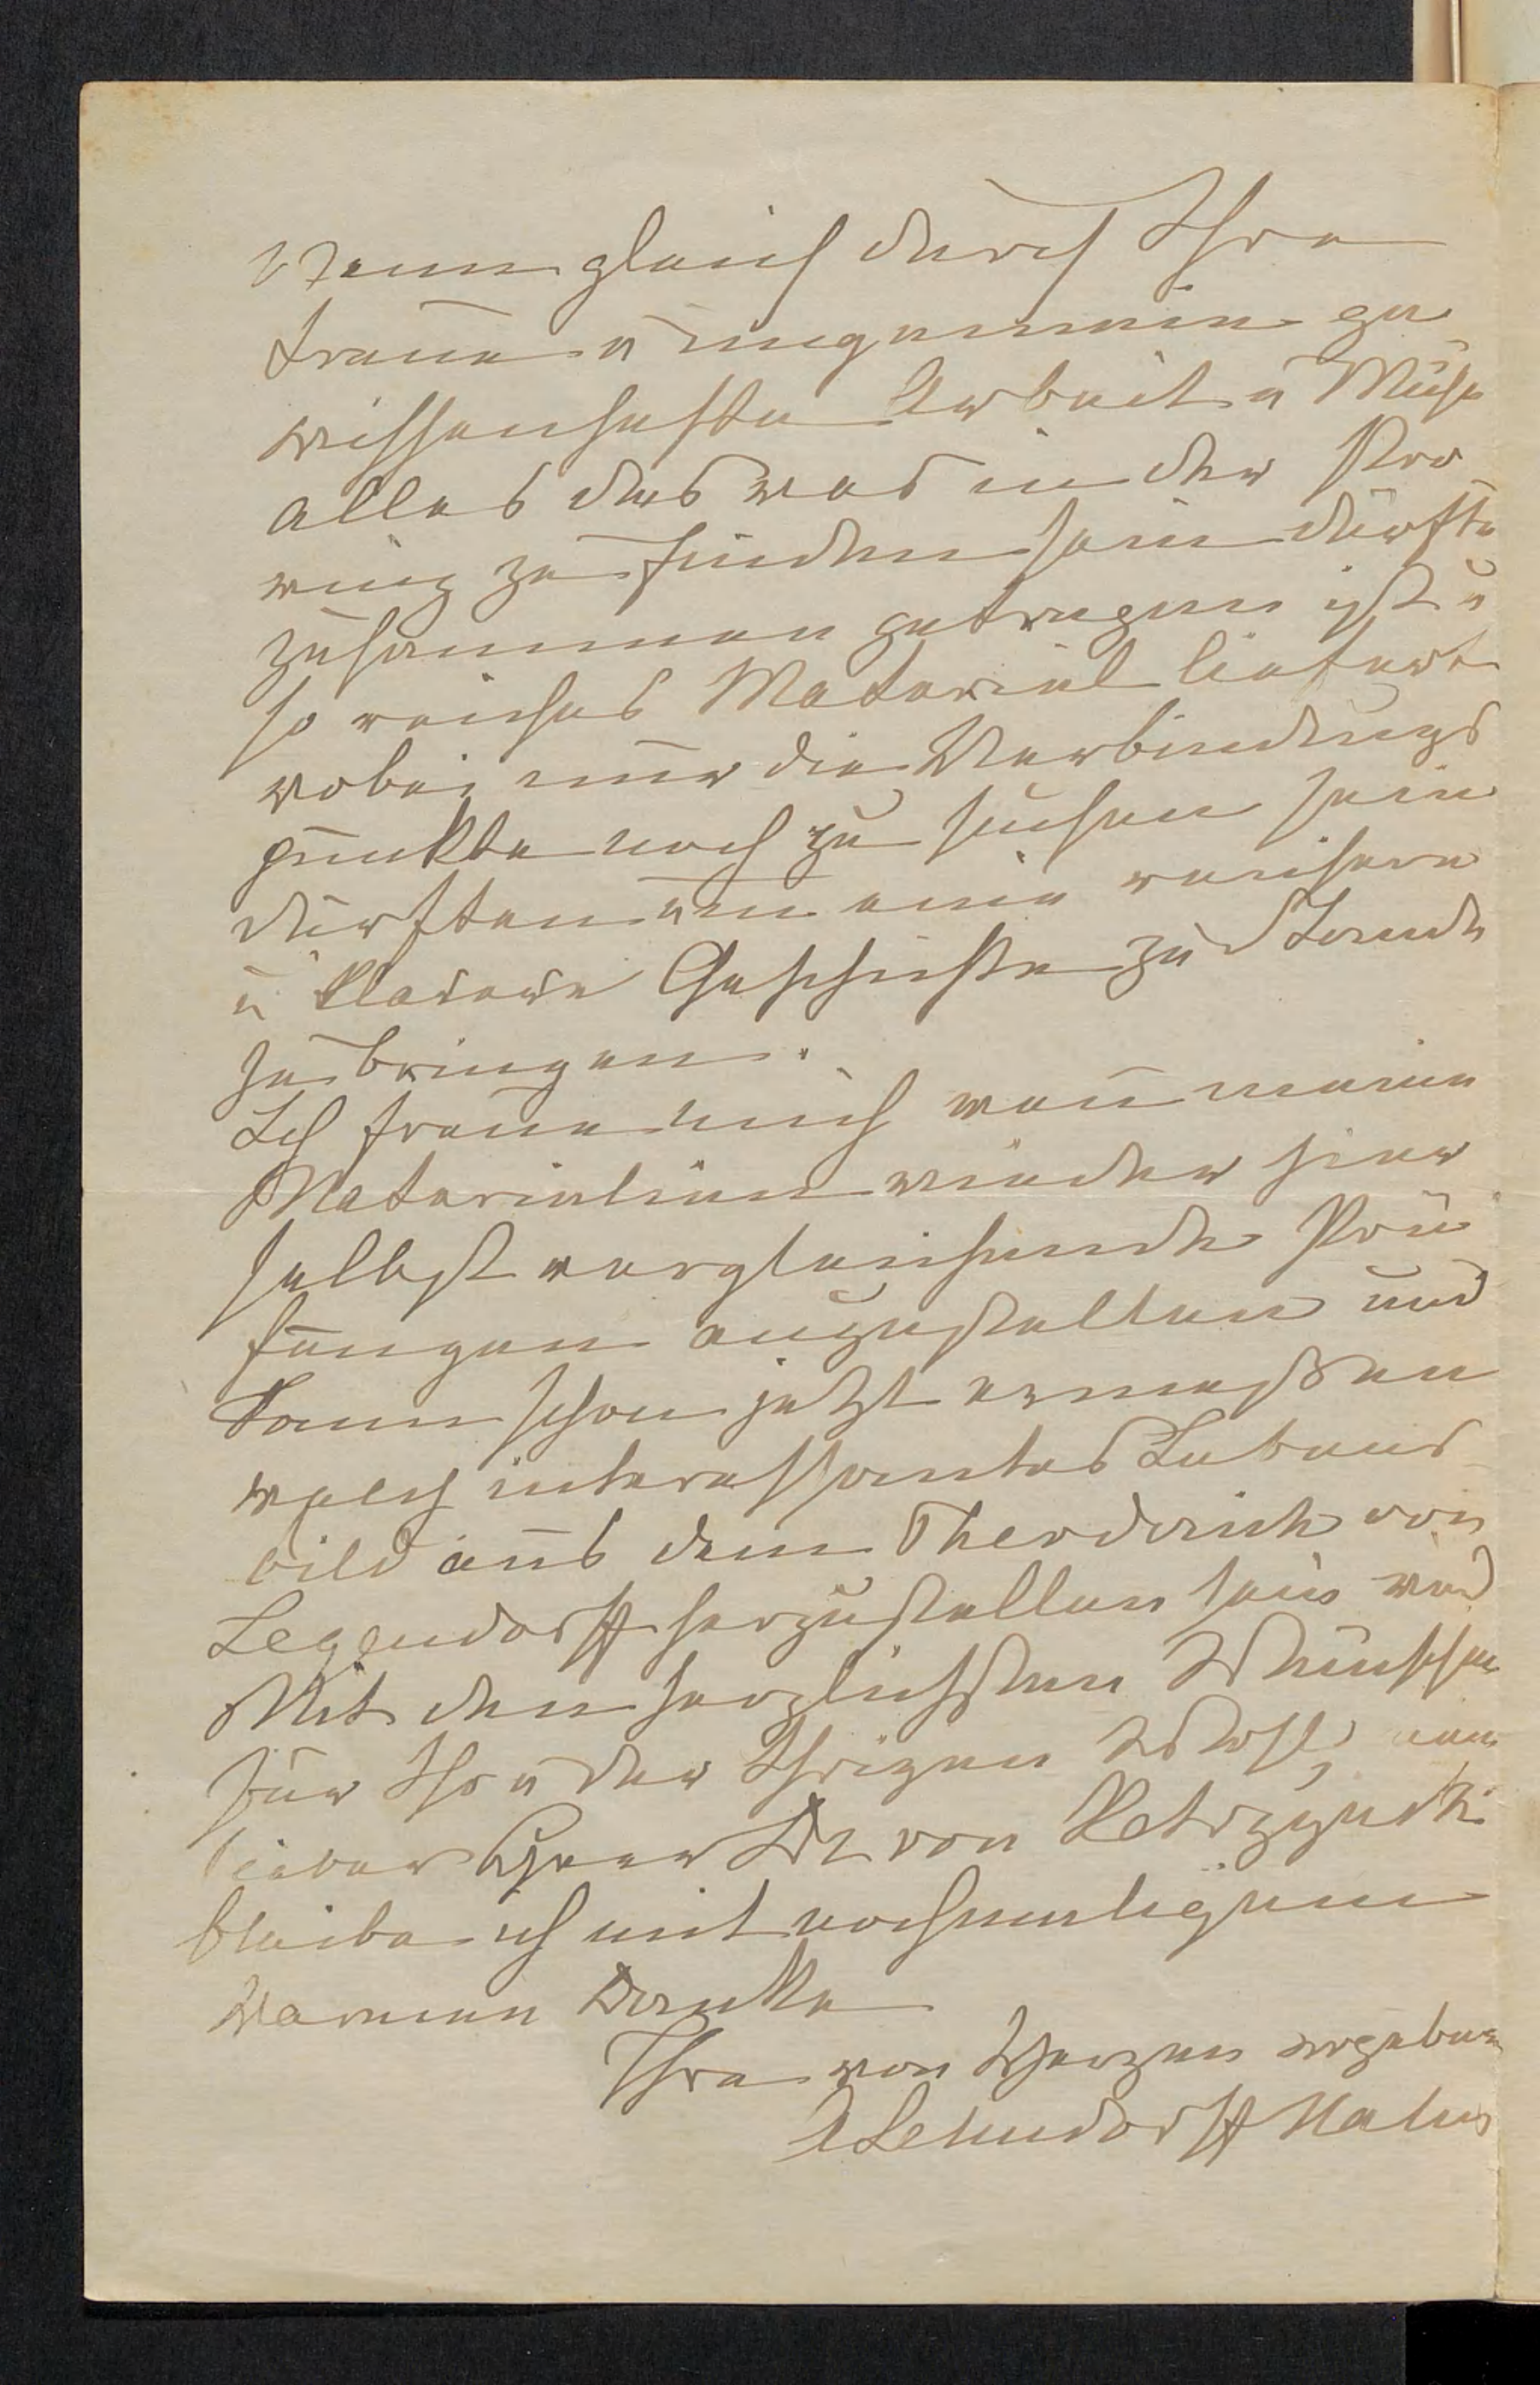 Wenn gleich durch Ihre
treue u ungemein ge
wissenhafte Arbeit u Mühe
alles das was in der Pro
winz zu finden sein dürfte
zusammen getragen ist u
so reiches Material liefert
wobei nur die Verbindungs
punkte noch zu suchen sein
dürften um eine reichere
u klarere Geschichte zu Stande
zu bringen.
Ich freue mich wen meine
Materialien wieder hier
selbst vergleichende Prü
fungen anzustellen und
kann schon jetzt ermeßen
welch interessantes Lebens
bild aus dem Theodorich von
Legendorff herzustellen sein wird
Mit den herzlichsten Wünschen
für Ihr u der Ihrigen Wohl,
lieber Herr Dr von Ketrzynski
bleibe ich mit nochmaligem
warmen Danke
Ihre von Herzen ergebene
A Lehndorff Hahn